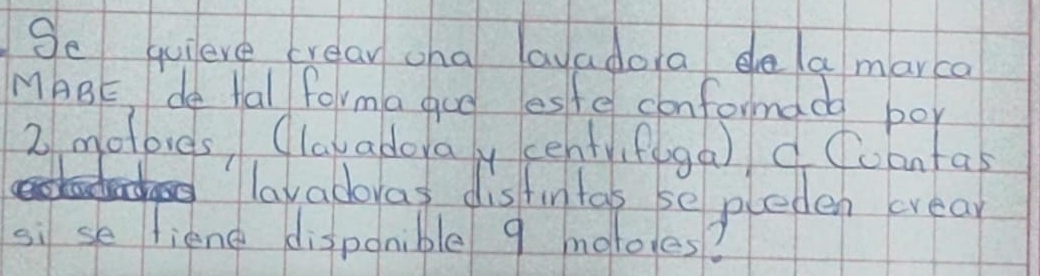 Se quiere crear una lavadora de la marca
MABE, de tal forma que este conformada por
2 motores, (lavadora y centrifuga), ¿Cuantas
lavadoras distintas se pueden crear
si se tiene disponible 9 motores?